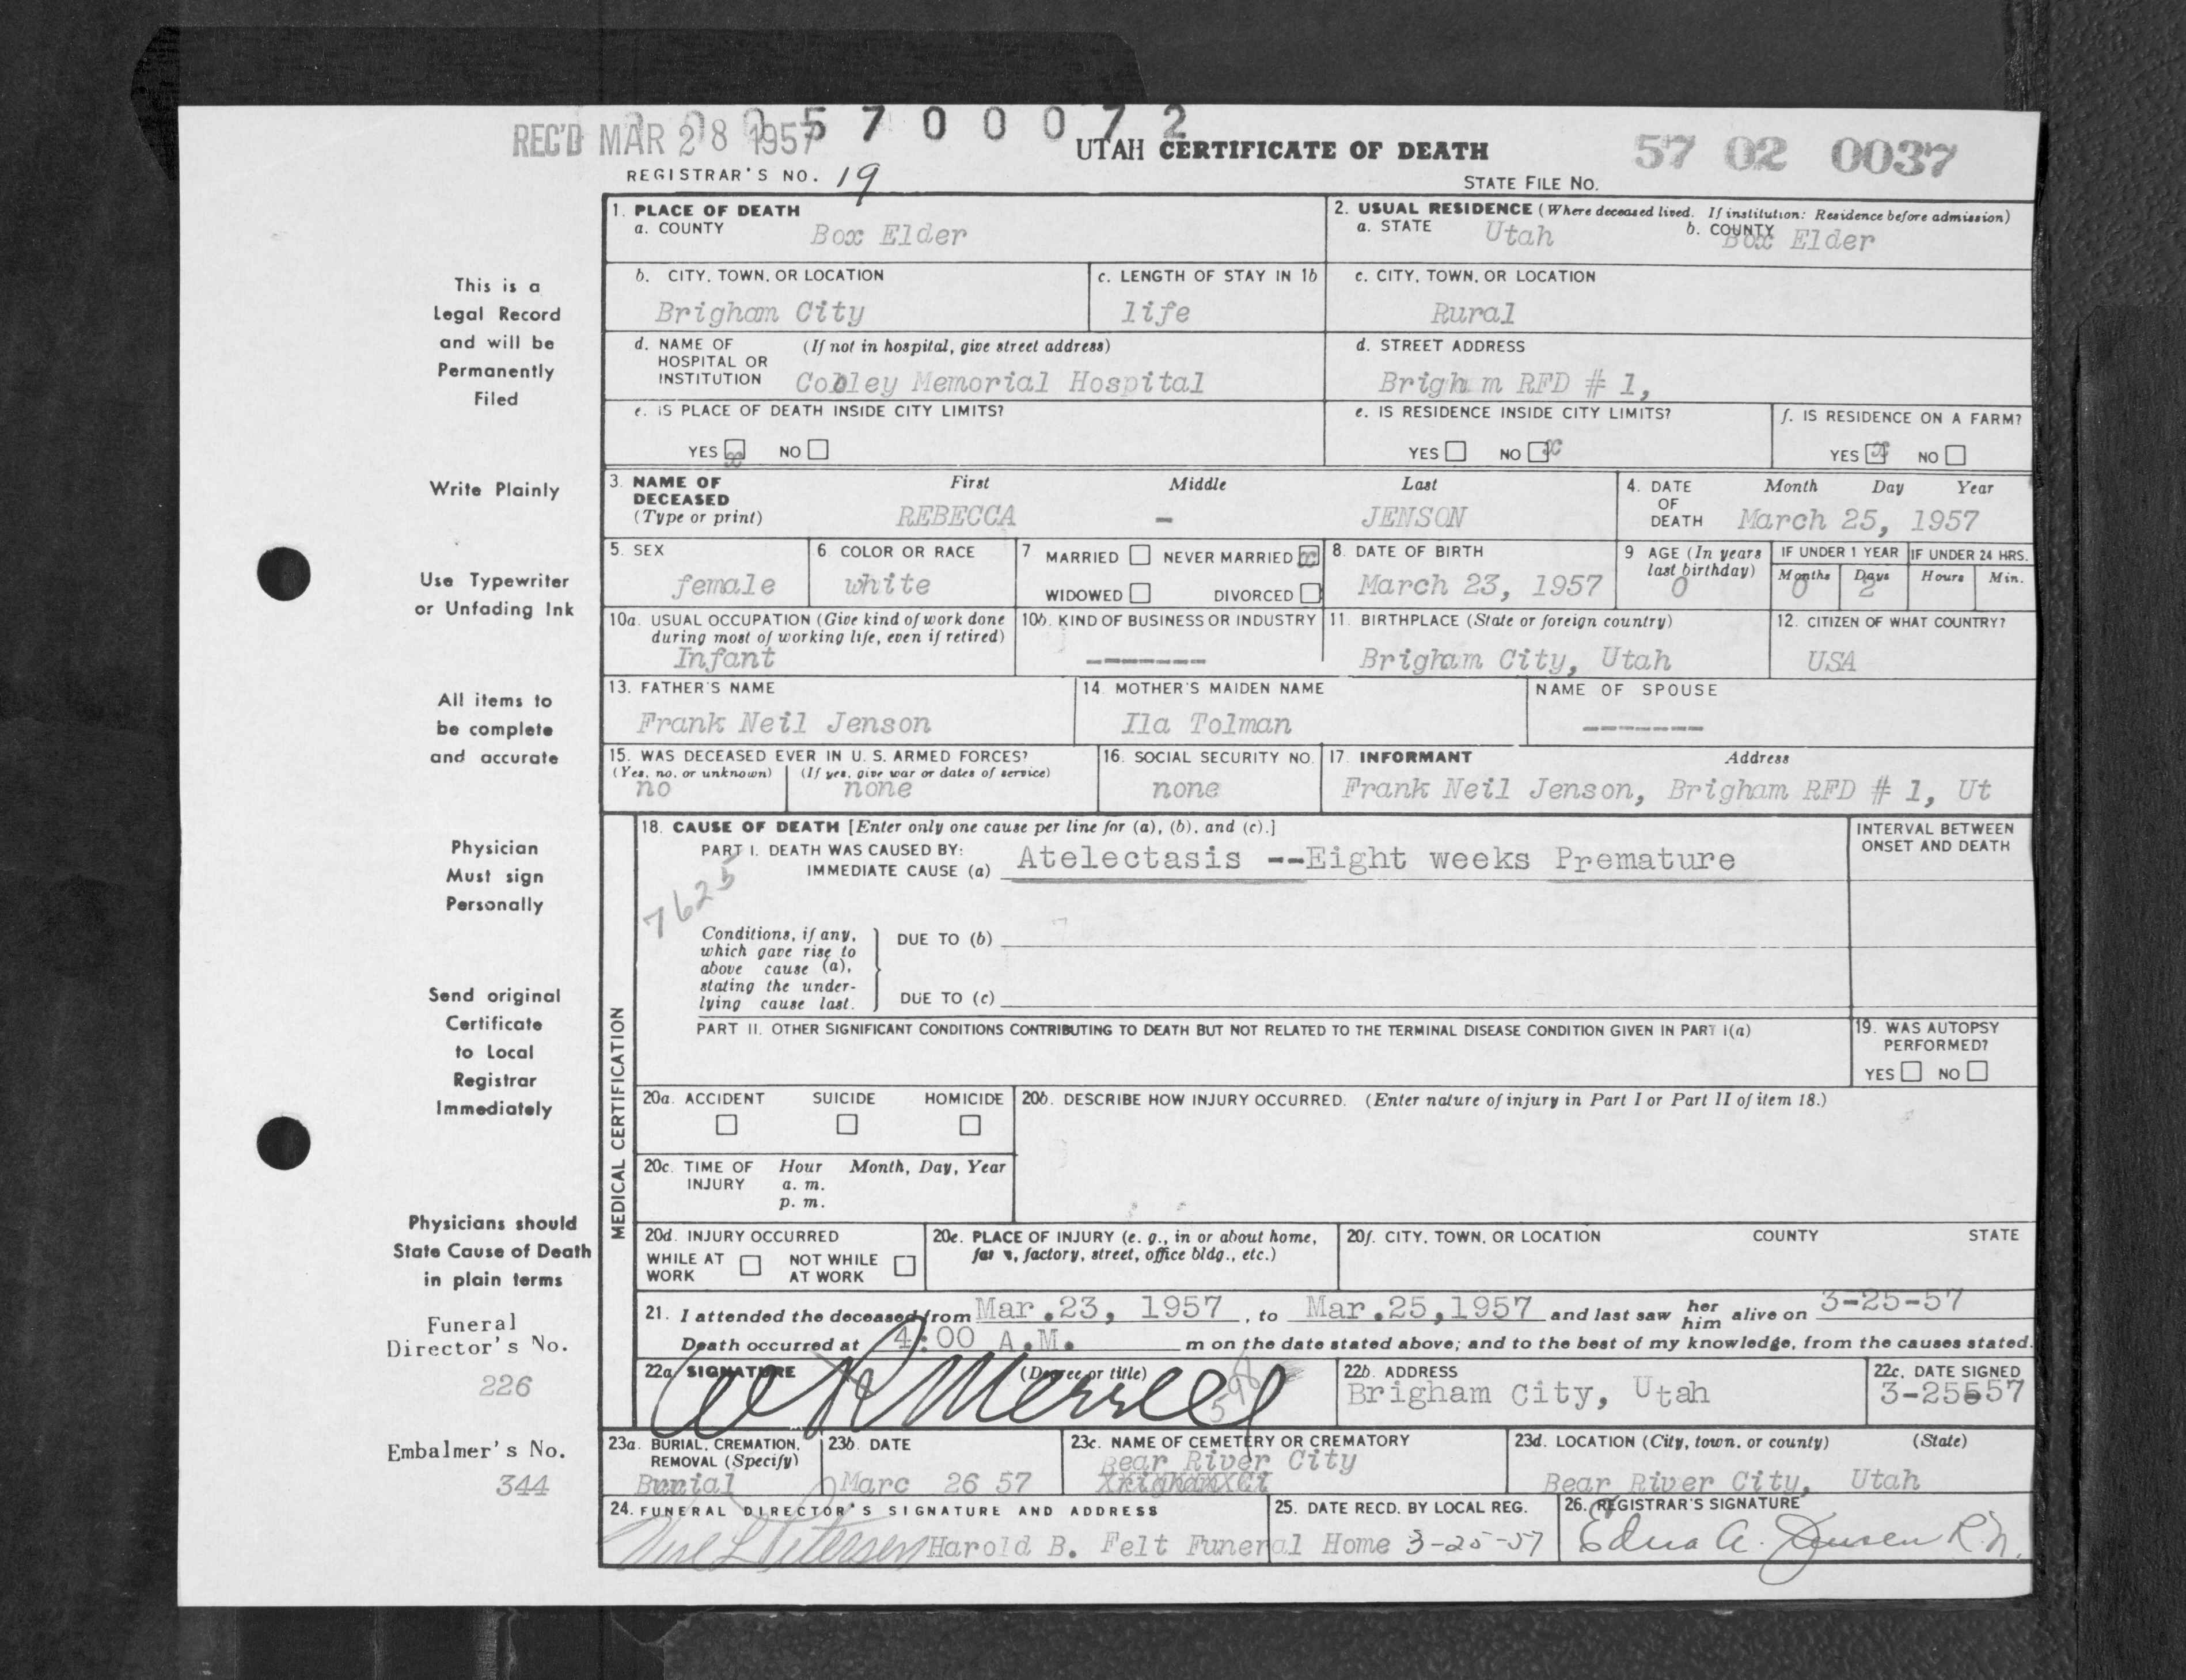 REC'D MAR 28 1957
5700072
UTAH CERTIFICATE OF DEATH
57 02 0037
REGISTRAR'S NO. 19
STATE FILE NO.
1. PLACE OF DEATH
a. COUNTY Box Elder
2. USUAL RESIDENCE (Where deceased lived. If institution: Residence before admission)
a. STATE Utah b. COUNTY Box Elder
b. CITY, TOWN, OR LOCATION
Brigham City
c. LENGTH OF STAY IN 1b
life
c. CITY, TOWN, OR LOCATION
Rural
d. NAME OF HOSPITAL OR INSTITUTION (If not in hospital, give street address)
Cooley Memorial Hospital
d. STREET ADDRESS
Brigh m RFD # 1,
e. IS PLACE OF DEATH INSIDE CITY LIMITS?
YES x NO
e. IS RESIDENCE INSIDE CITY LIMITS?
YES NO x
f. IS RESIDENCE ON A FARM?
YES x NO
3. NAME OF DECEASED (Type or print)
First Middle Last
REBECCA - JENSON
4. DATE OF DEATH Month Day Year
March 25, 1957
5. SEX
female
6. COLOR OR RACE
white
7 MARRIED NEVER MARRIED x
WIDOWED DIVORCED
8. DATE OF BIRTH
March 23, 1957
9 AGE (In years last birthday)
0
IF UNDER 1 YEAR IF UNDER 24 HRS.
Months Days Hours Min.
0 2
10a. USUAL OCCUPATION (Give kind of work done during most of working life, even if retired)
Infant
10b. KIND OF BUSINESS OR INDUSTRY
-------
11. BIRTHPLACE (State or foreign country)
Brigham City, Utah
12. CITIZEN OF WHAT COUNTRY?
USA
13. FATHER'S NAME
Frank Neil Jenson
14. MOTHER'S MAIDEN NAME
Ila Tolman
NAME OF SPOUSE
-------
15. WAS DECEASED EVER IN U. S. ARMED FORCES?
(Yes, no, or unknown) (If yes, give war or dates of service)
no none
16. SOCIAL SECURITY NO.
none
17. INFORMANT Address
Frank Neil Jenson, Brigham RFD # 1, Ut
MEDICAL CERTIFICATION
18. CAUSE OF DEATH [Enter only one cause per line for (a), (b), and (c).]
PART I. DEATH WAS CAUSED BY:
IMMEDIATE CAUSE (a) Atelectasis --Eight weeks Premature
INTERVAL BETWEEN ONSET AND DEATH
7625
Conditions, if any, which gave rise to above cause (a), stating the underlying cause last.
DUE TO (b)
DUE TO (c)
PART II. OTHER SIGNIFICANT CONDITIONS CONTRIBUTING TO DEATH BUT NOT RELATED TO THE TERMINAL DISEASE CONDITION GIVEN IN PART I(a)
19. WAS AUTOPSY PERFORMED?
YES NO
20a. ACCIDENT SUICIDE HOMICIDE
20b. DESCRIBE HOW INJURY OCCURRED. (Enter nature of injury in Part I or Part II of item 18.)
20c. TIME OF INJURY Hour Month, Day, Year
a. m.
p. m.
20d. INJURY OCCURRED
WHILE AT WORK NOT WHILE AT WORK
20e. PLACE OF INJURY (e. g., in or about home, farm, factory, street, office bldg., etc.)
20f. CITY, TOWN, OR LOCATION COUNTY STATE
21. I attended the deceased from Mar.23, 1957, to Mar.25,1957 and last saw her him alive on 3-25-57
Death occurred at 4:00 A.M. m on the date stated above; and to the best of my knowledge, from the causes stated.
22a. SIGNATURE (Degree or title)
Merrell
22b. ADDRESS
Brigham City, Utah
22c. DATE SIGNED
3-25-57
23a. BURIAL, CREMATION, REMOVAL (Specify)
Burial
23b. DATE
Marc 26 57
23c. NAME OF CEMETERY OR CREMATORY
Bear River City
23d. LOCATION (City, town, or county) (State)
Bear River City, Utah
24. FUNERAL DIRECTOR'S SIGNATURE AND ADDRESS
Harold B. Felt Funeral Home
25. DATE RECD. BY LOCAL REG.
3-25-57
26. REGISTRAR'S SIGNATURE
Edna A. Jensen R.N.
This is a
Legal Record
and will be
Permanently
Filed
Write Plainly
Use Typewriter
or Unfading Ink
All items to
be complete
and accurate
Physician
Must sign
Personally
Send original
Certificate
to Local
Registrar
Immediately
Physicians should
State Cause of Death
in plain terms
Funeral
Director's No.
226
Embalmer's No.
344